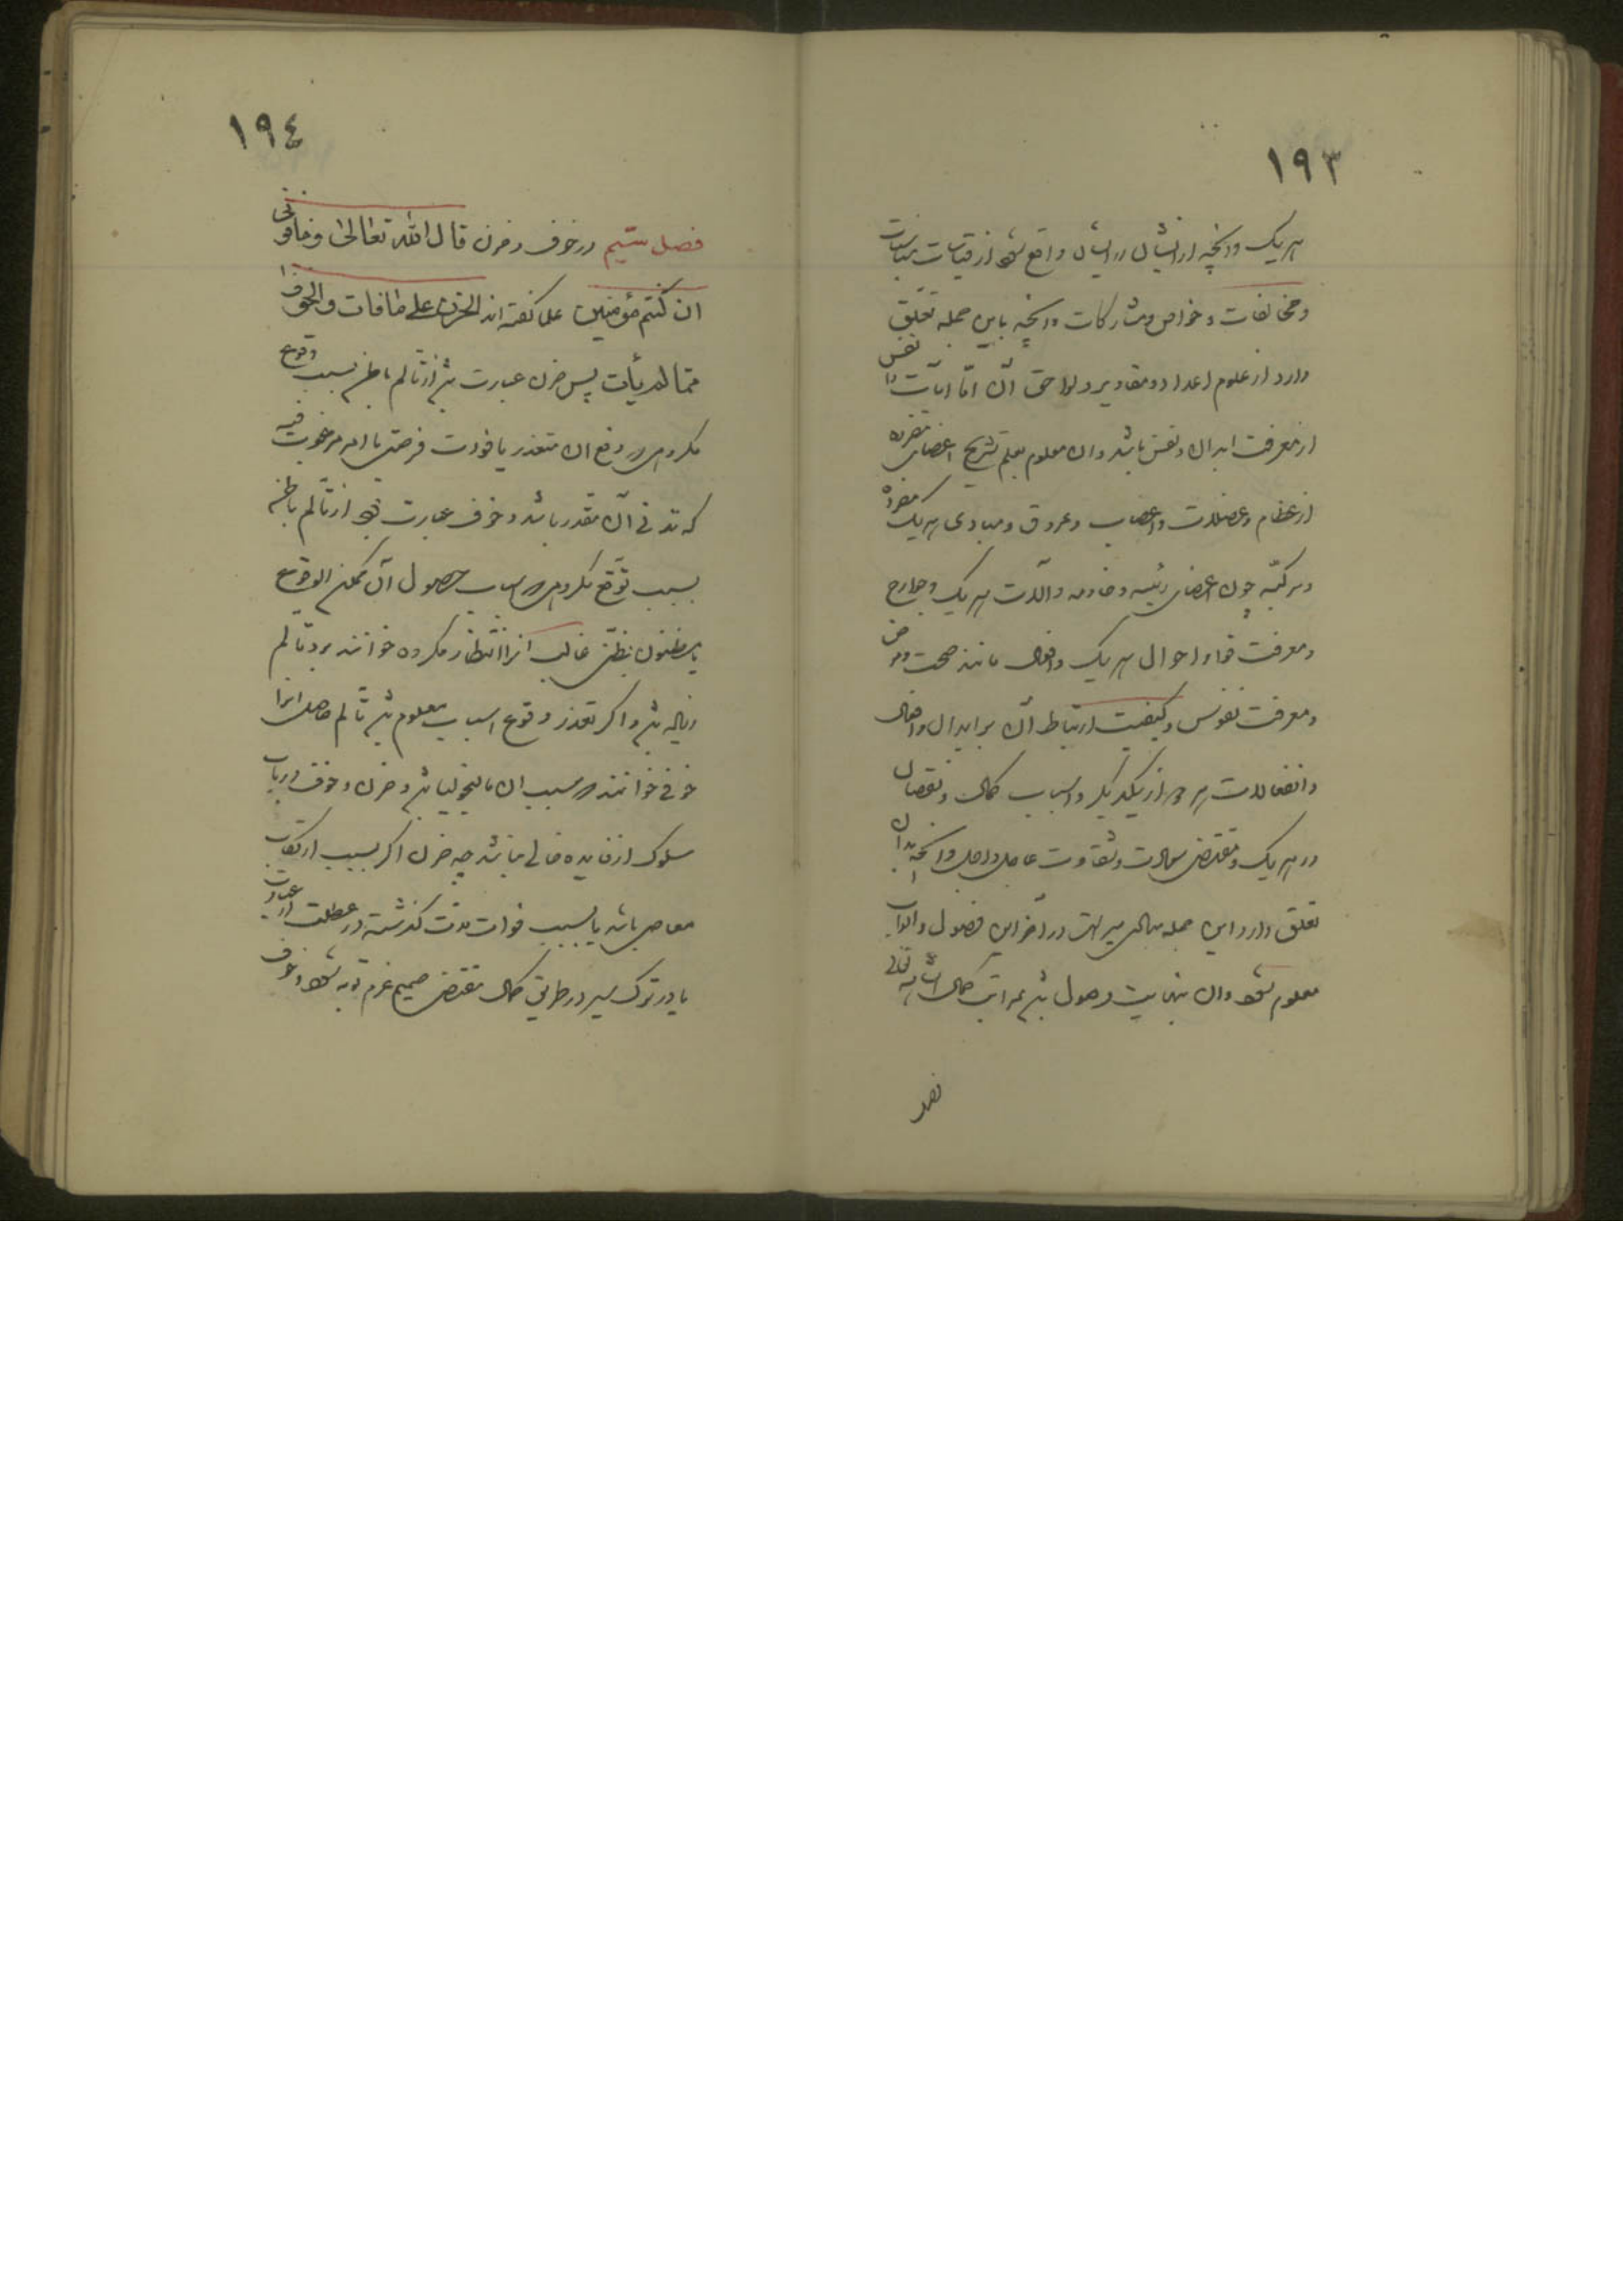 ١٩٣
هر یک و آنچه از ایشان در ایشان واقع شود از قیاسات مناسبات
و مخالفات و خواص و مشارکات و آنچه باین جمله تعلق
دارد از علوم اعداد و مقادیر و لواحق آن اما آیات نفس را
از معرفت ابدان و نفس باشد و ان معلوم بعلم تشریح اعضای مفرده
از عظام و عضلات و اعصاب و عروق و مبادی هر یک مفرده
و مرکبه چون اعضای رئیسه و خادمه و آلات هر یک و جوارح
و معرفت قوا و احوال هر یک و افعال مانند صحت و مرض
و معرفت نفوس و کیفیت ارتباط آن بر ابدان و افعال
و انفعالات هر دو از یکدیگر و اسباب کمال و نقصان
در هر یک و مقتضی سعادت و شقاوت عاجل و اجل و آنچه بدان
تعلق دارد این جمله مبادی سیر است در آخر این فصول و ابواب
معلوم شود و ان نهایت وصول باشد بمراتب کمال انشاء الله تعالی
فصل
١٩٤
فصل سیم در خوف و حزن قال الله تعالی و خافونی
ان کنتم مؤمنین علما گفته اند الحزن علی ما فات و الخوف
مما لم یأت پس حزن عبارت باشد از تألم باطن بسبب وقوع
مکروهی که دفع ان متعذر یا فوات فرصتی یا امر مرغوب فیه
که تدنی آن مقدر باشد و خوف عبارت بود از تألم باطن
بسبب توقع مکروهی که اسباب حصول آن ممکن الوقوع
یا مظنون بظن غالب آنرا انتظار مکروه خوانند بود تألم
زیاده باشد و اگر تعذر وقوع اسباب معلوم باشد تألم حاصل انرا
خوفی خوانند که سبب ان مالیخولیا باشد و حزن و خوف در باب
سلوک از فایده خالی نباشد چه حزن اگر بسبب ارتکاب
معاصی باشد یا بسبب فوات مدت گذشته در عطلت از عبادت
یا در ترک سیر در طریق کمال مقتضی صمیم عزم توبه شود و خوف